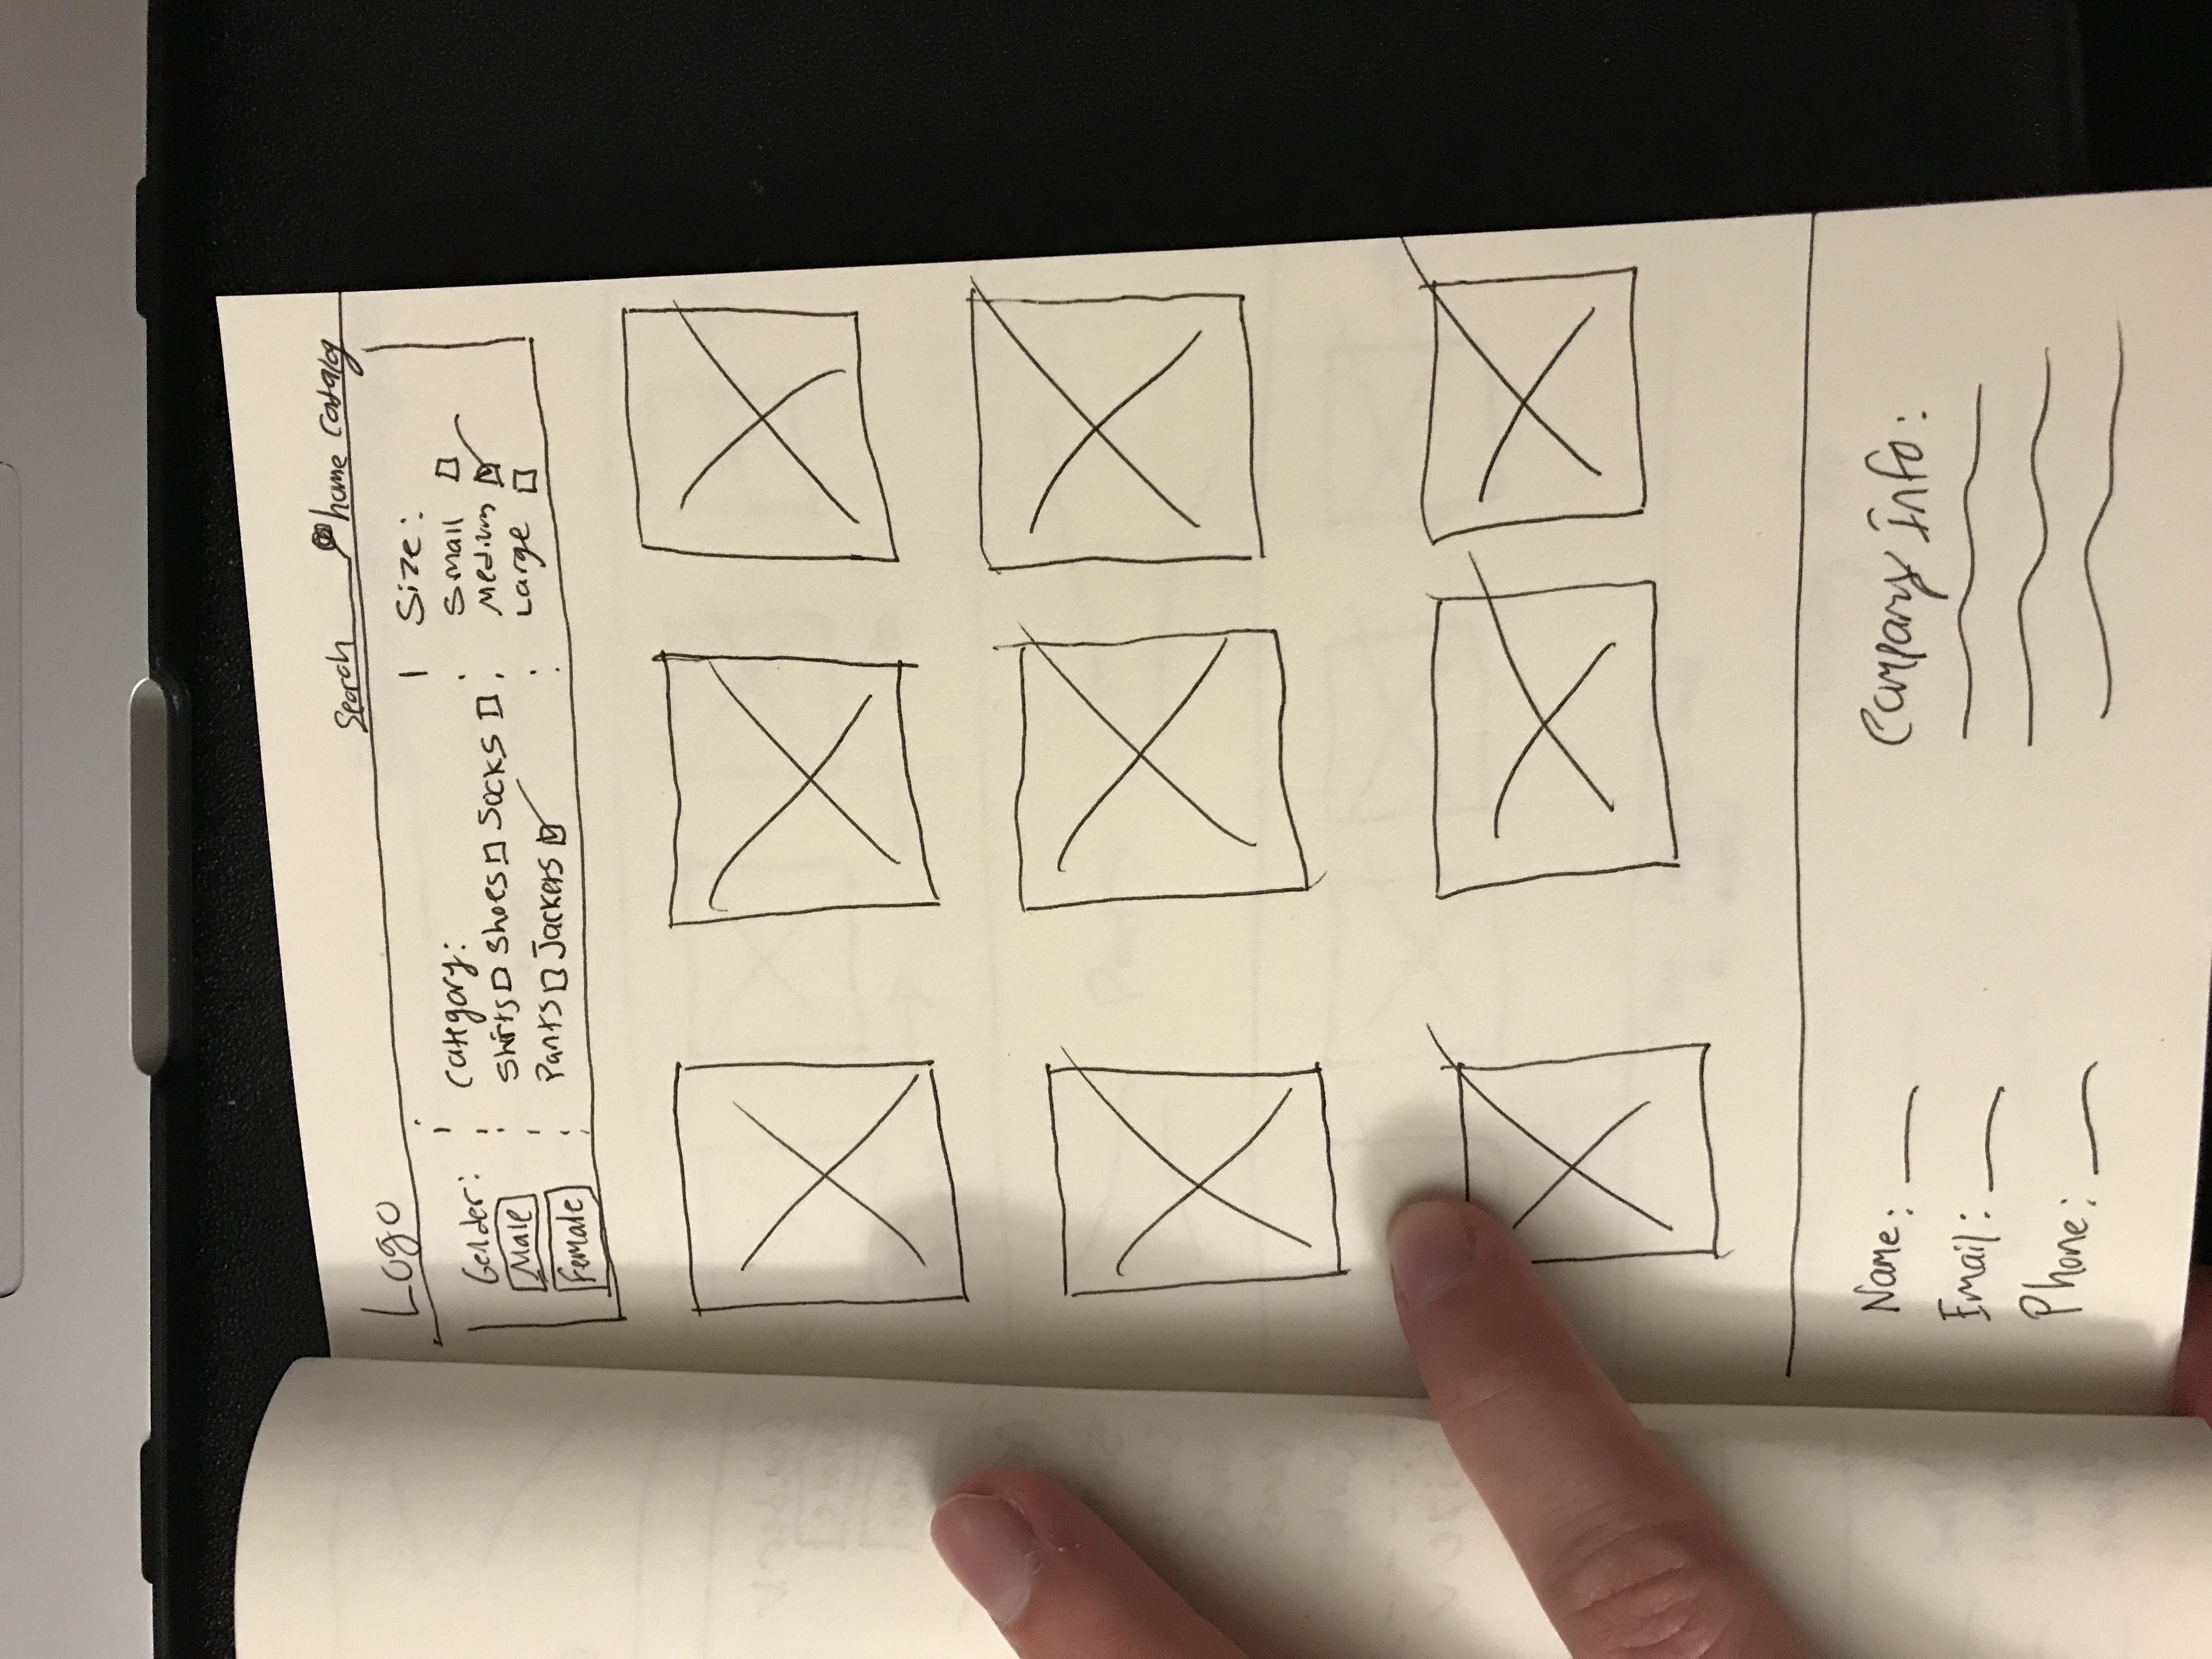 Logo
Search home catalog
Gender:
Male
Female
Category:
Shirts Shoes Socks
Pants Jackets
Size:
Small
Medium
Large
Name:
Email:
Phone:
Company Info: